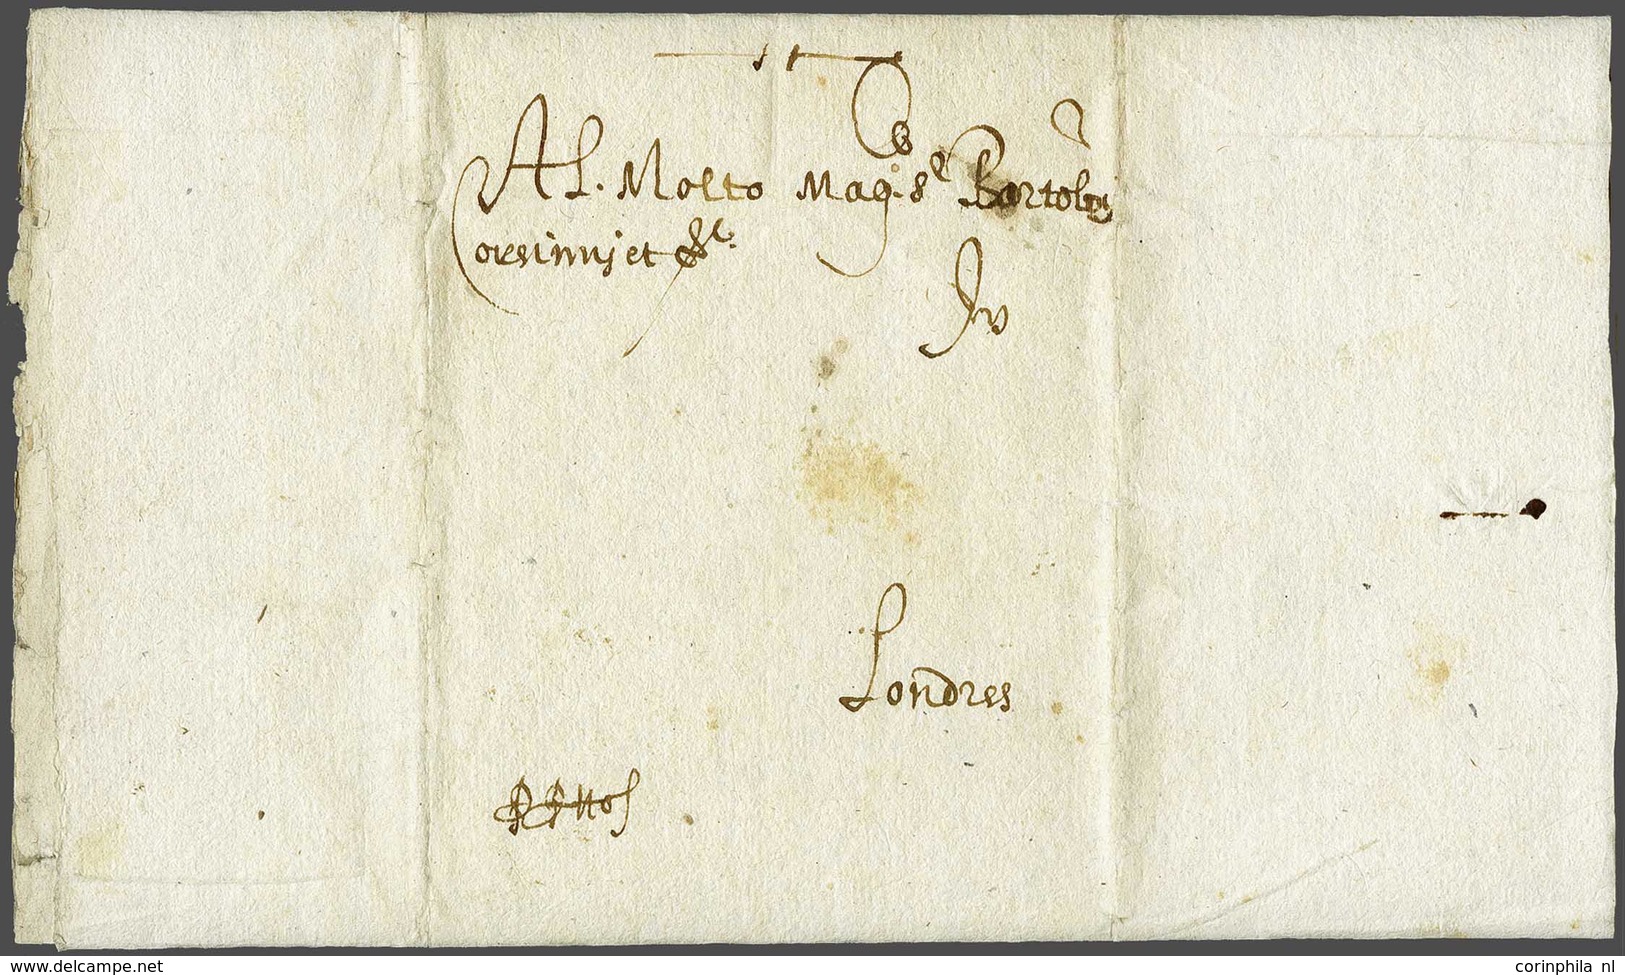 Al. Molto Mag.co Sr. Bartolmeo
Corsinnij et
In
Londres
www.delcampe.net
corinphila nl